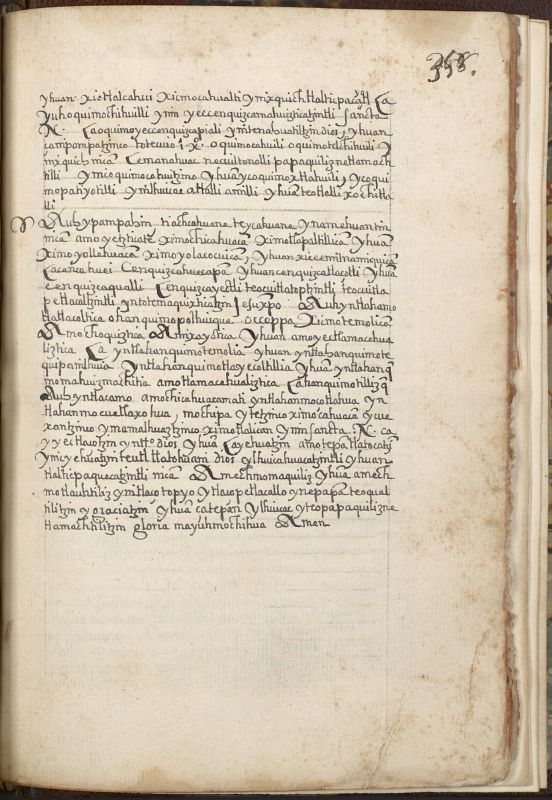 358.
yhuan xictlalcahui xicmocahualti yn ixquich tlalticpacayotl Ca
yuh oquimochihuilli ynin yeccenquizcamahuizticatzintli sancta
N. Ca oquimoyeccenquizcapiali yn itenahuatiltzin dios, yhuan
ca ypampatzinco totecuio J. X. o quimocahuili o quimotelchihuili yn
ixquich nican Cemanahuac necuiltonolli papaquiliznetlamach
tilli yn icequimocahuitzino yhua yc oquimoxtlahuili, yc oqui
mopatiyotilli yn ilhuicac atlalli amilli yhuã teotlalli xochitla
lli
Auh ypampahin tiachcahuane teycahuane ynamehuantin
nicã amoyetzticate ximochicahuacã ximotlapaltilicã yhuã
ximoyollahuacã ximoyolacocuicã, yhuan xiccemilnamiquicã
Cenquizcahuecapã yhuan cenquizcatlacotli yhuã
cenquizcaqualli Cenquizcayectli teocuitlatopitzintli teocuitla
petlacaltzintli yn totemaquixticatzin Jesuxpo. Auh yntlahamo
tlatlacoltica ohanquimopolhuique occeppa Ximotemolicã
Amochoquiztica Amixayotica yhuan amoyectlamacehua
liztica Ca yntlahanquimotemolia yhuan yntlahanquimote
quipanilhuia yntlahanquimotlayecoltillia yhuã yntlahanq̃
momahuizmachitia amotlamacehualiztica Cahanquimottilizq̃
Auh yntlacamo amochicahuacanati yntlahanmocotlahua yn
tlahanmocuetlaxohua, mochipa ytetzinco ximocahuacã ycue
xantzinco ymamalhuaztzinco ximotlalican ynin sancta N. ca
yyeitlaiotzin ynto. dios yhuã Ca yehuatzin amotepãtlatocatzĩ
yn icyehuatzin teutl tlatohuani dios ylhuicahuacatzintli yhuan
tlalticpaquecatzintli nican Amechmomaquiliz yhuã amech
motlauhtiliz yn itlaçotopyo ytlaçopetlacallo ynepapã teoqual
tilitzin ygraciatzin yhuã catepan ylhuicac yteopapaquilizne
tlamachtilitzin gloria mayuhmochihua Amen